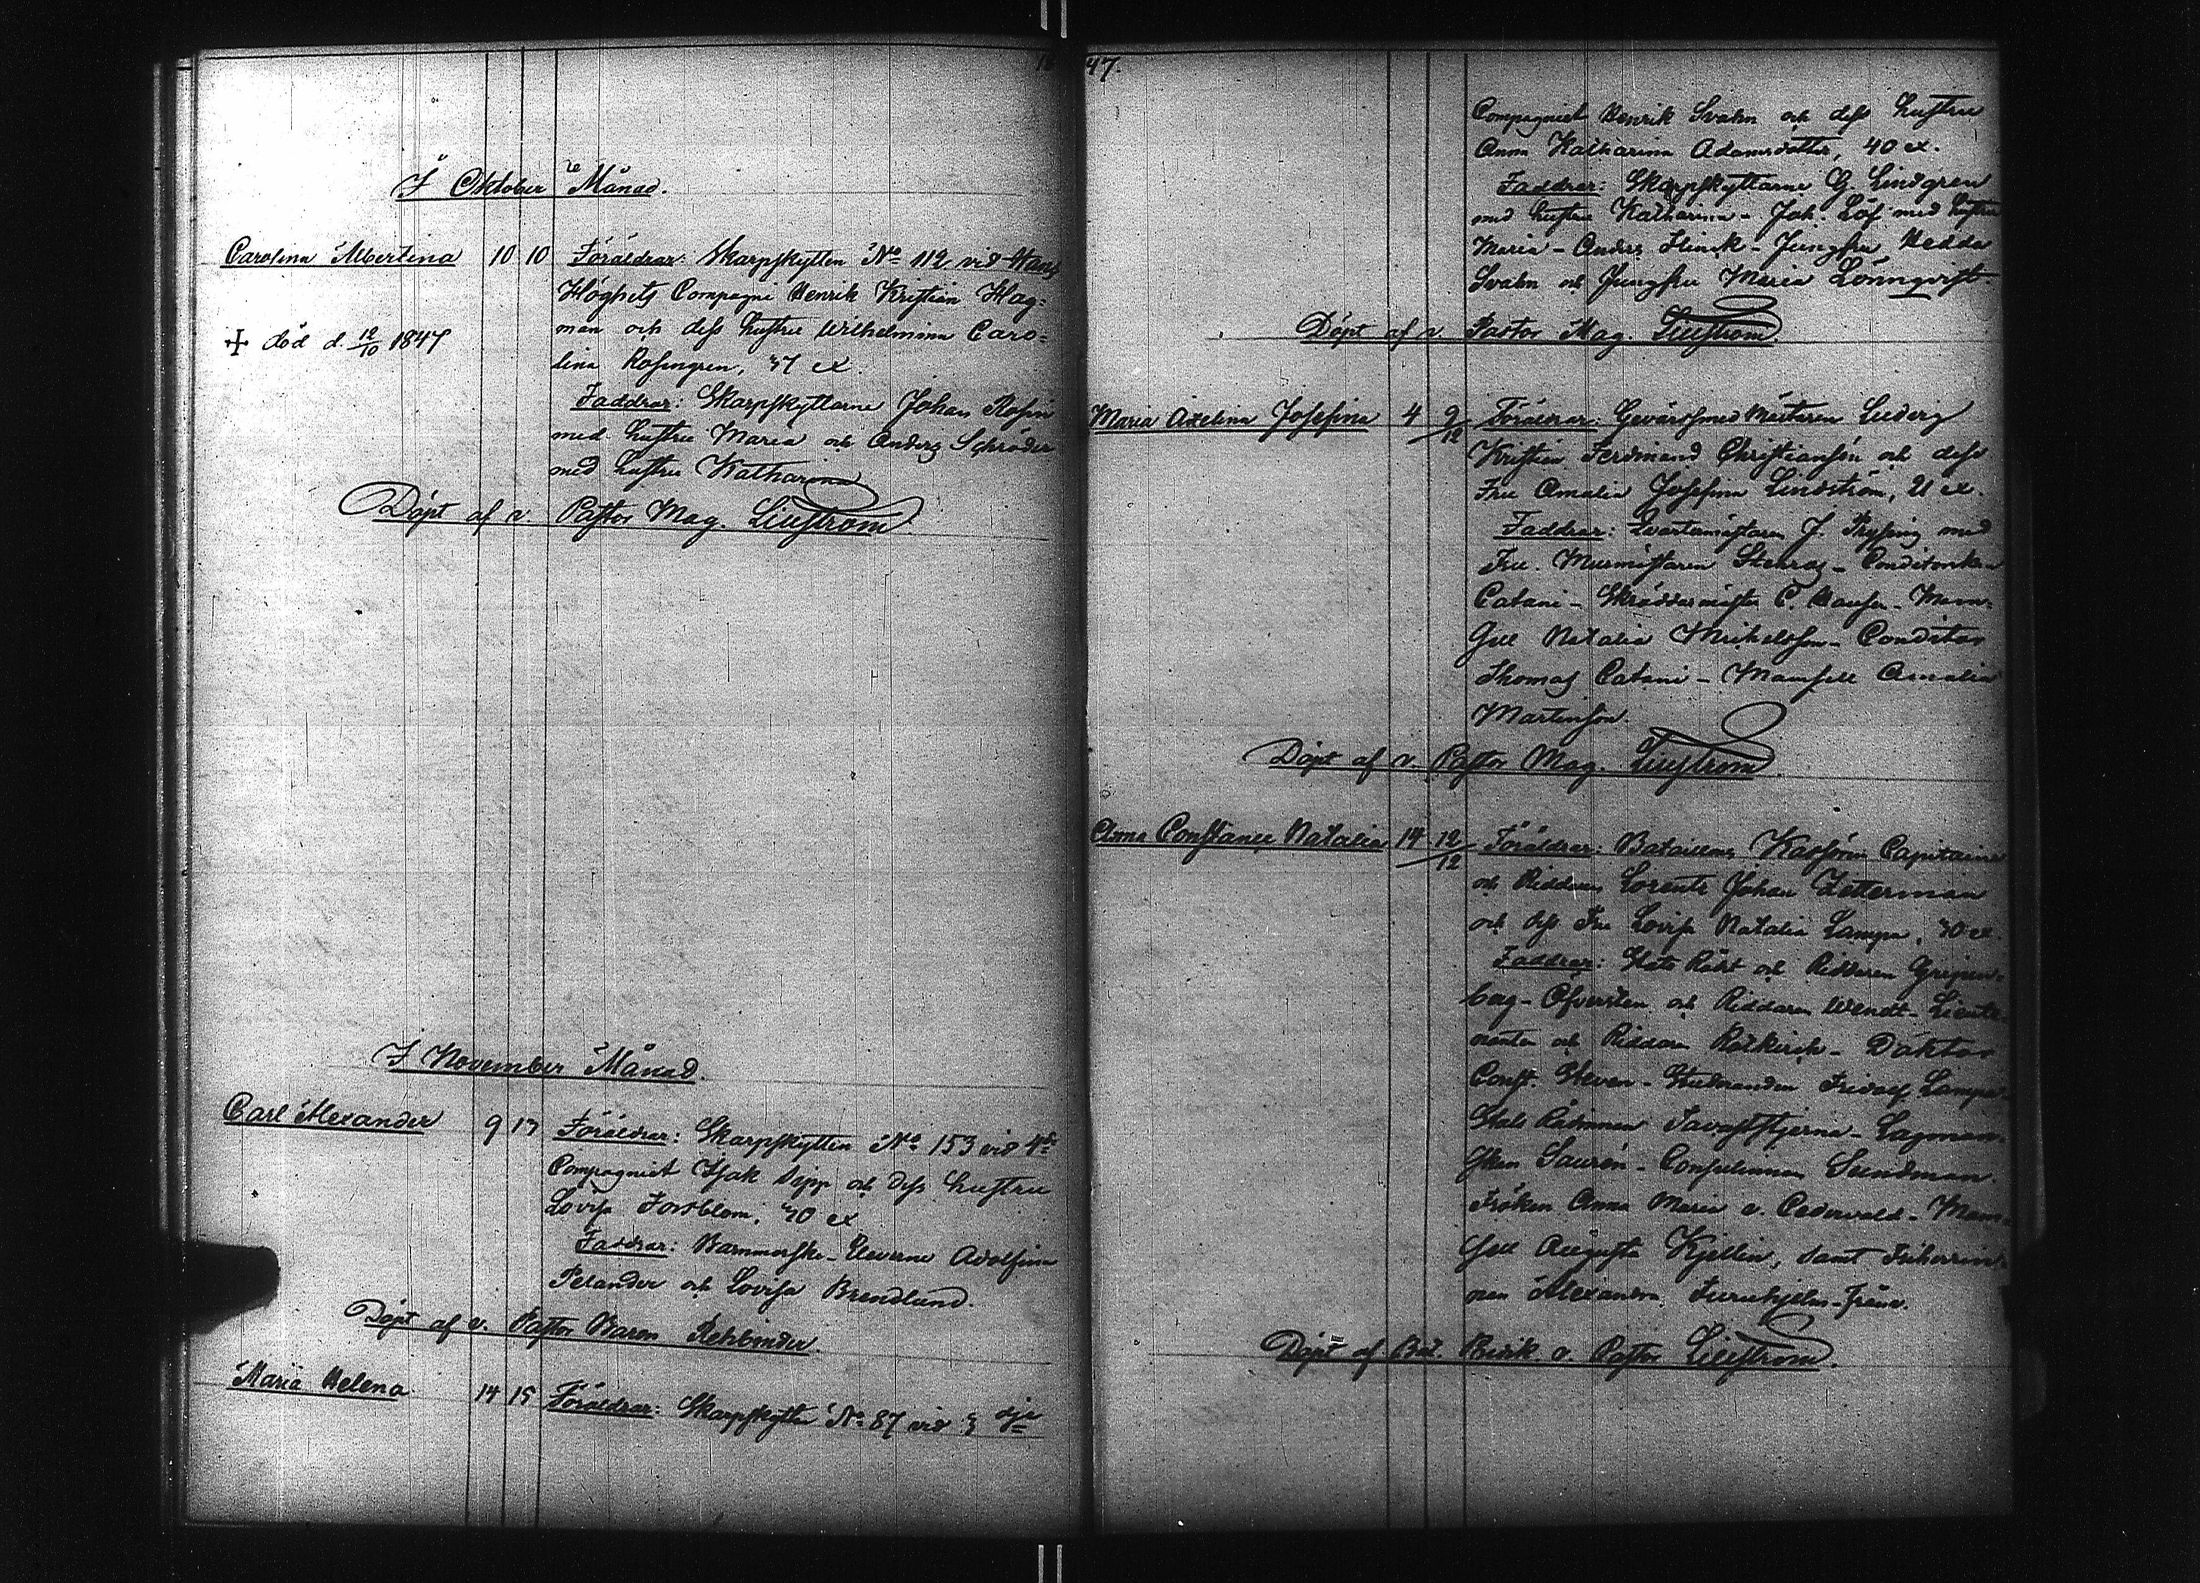 1847.
I Oktober Månad.
Carolina Albertina 10 10 Föräldrar: Skarpskytten No 112 vid Hans
Höghets Compagni Henrik Kristian Hag=
man och dess hustru Wilhelmina Caro=
+ död d. 12/10 1847
lina Rosengren, 37 ex.
Faddrar: Skarpskyttarne Johan Rosin
med hustru Maria och Anders Schröder
med hustru Katharina
Döpt af v. Pastor Mag. Liliström
I November Månad.
Carl Alexander 9 13 Föräldrar: Skarpskytten No 153 vid 4de
Compagniet Isak Sipp och dess hustru
Lovisa Forsblom, 30 ex
Faddrar: Barnmorske-Eleverne Adolfina
Pelander och Lovisa Brendlund.
Döpt af v. Pastor Baron Rehbinder.
Maria Helena 14 15 Föräldrar: Skarpskytten No 87 vid 3dje
Compagniet Henrik Svahn och dess hustru
Anna Katharina Adamsdotter, 40 ex.
Faddrar: Skarpskyttarne G Lindgren
med hustru Katharina - Joh. Löf med hustru
Maria - Anders Flinck - Jungfru Hedda
Svahn och Jungfru Maria Lönnqvist.
Döpt af v. Pastor Mag. Liliström
Maria Axelina Josefina 4 9/12 Föräldrar: Gevärssmed Mästaren Ludvig
Kristian Ferdinand Christiansén och dess
Fru Amalia Josefina Lindström, 21 ex.
Faddrar: Qvartermästaren J. med
Fru. Murmästaren - Conditorskan
Catani - Skräddermäster C. - Mam=
sell Natalia Mikelsson - Conditor
Thomas Catani - Mamsell Amalia
Martinson.
Döpt af v. Pastor Mag. Liliström
Anna Constance Natalia 14 12/12 Föräldrar: Bataillons Kassören Capitaine
och Riddaren Lorents Johan Zetterman
och dess Fru Lovisa Natalia Lampa, 30 ex.
Faddrar: Stats Rådet och Riddaren Gripen=
berg - Öfversten och Riddaren Wendt - Lieute=
nanten och Riddaren Rotkirch - Doktor
Const. Steven - Studeranden Fridolf Lampa -
Stats Rådinnan Tavaststjerna - Lagman=
skan Saurén - Consulinnan Sundman.
Fröken Anna Maria v. Cederwald - Mam=
sell Augusta Kjellin, samt Friherrin=
nan Alexandra Furuhjelm -
Döpt af Bat. Predik. v. Pastor Liliström.